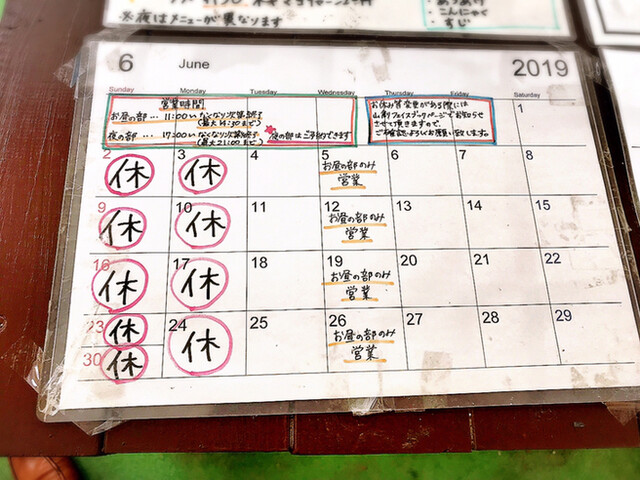 ※夜はメニューが異なります
こんにゃく
すじ
6 June 2019
Sunday Monday Tuesday Wednesday Thursday Friday Saturday
営業時間
お昼の部… 11:00〜なくなり次第終了
(最大14:30まで)
夜の部… 17:00〜なくなり次第終了
(最大21:00まで)
夜の部はご予約できます
お休み等変更がある際には
フェイスブックページでお知らせ
させて頂きますので、
ご確認よろしくお願い致します。
1
2 休 3 休 4 5 お昼の部のみ 6 7 8
営業
9 休 10 休 11 12 お昼の部のみ 13 14 15
営業
16 休 17 休 18 19 お昼の部のみ 20 21 22
営業
23 休 24 休 25 26 お昼の部のみ 27 28 29
営業
30 休